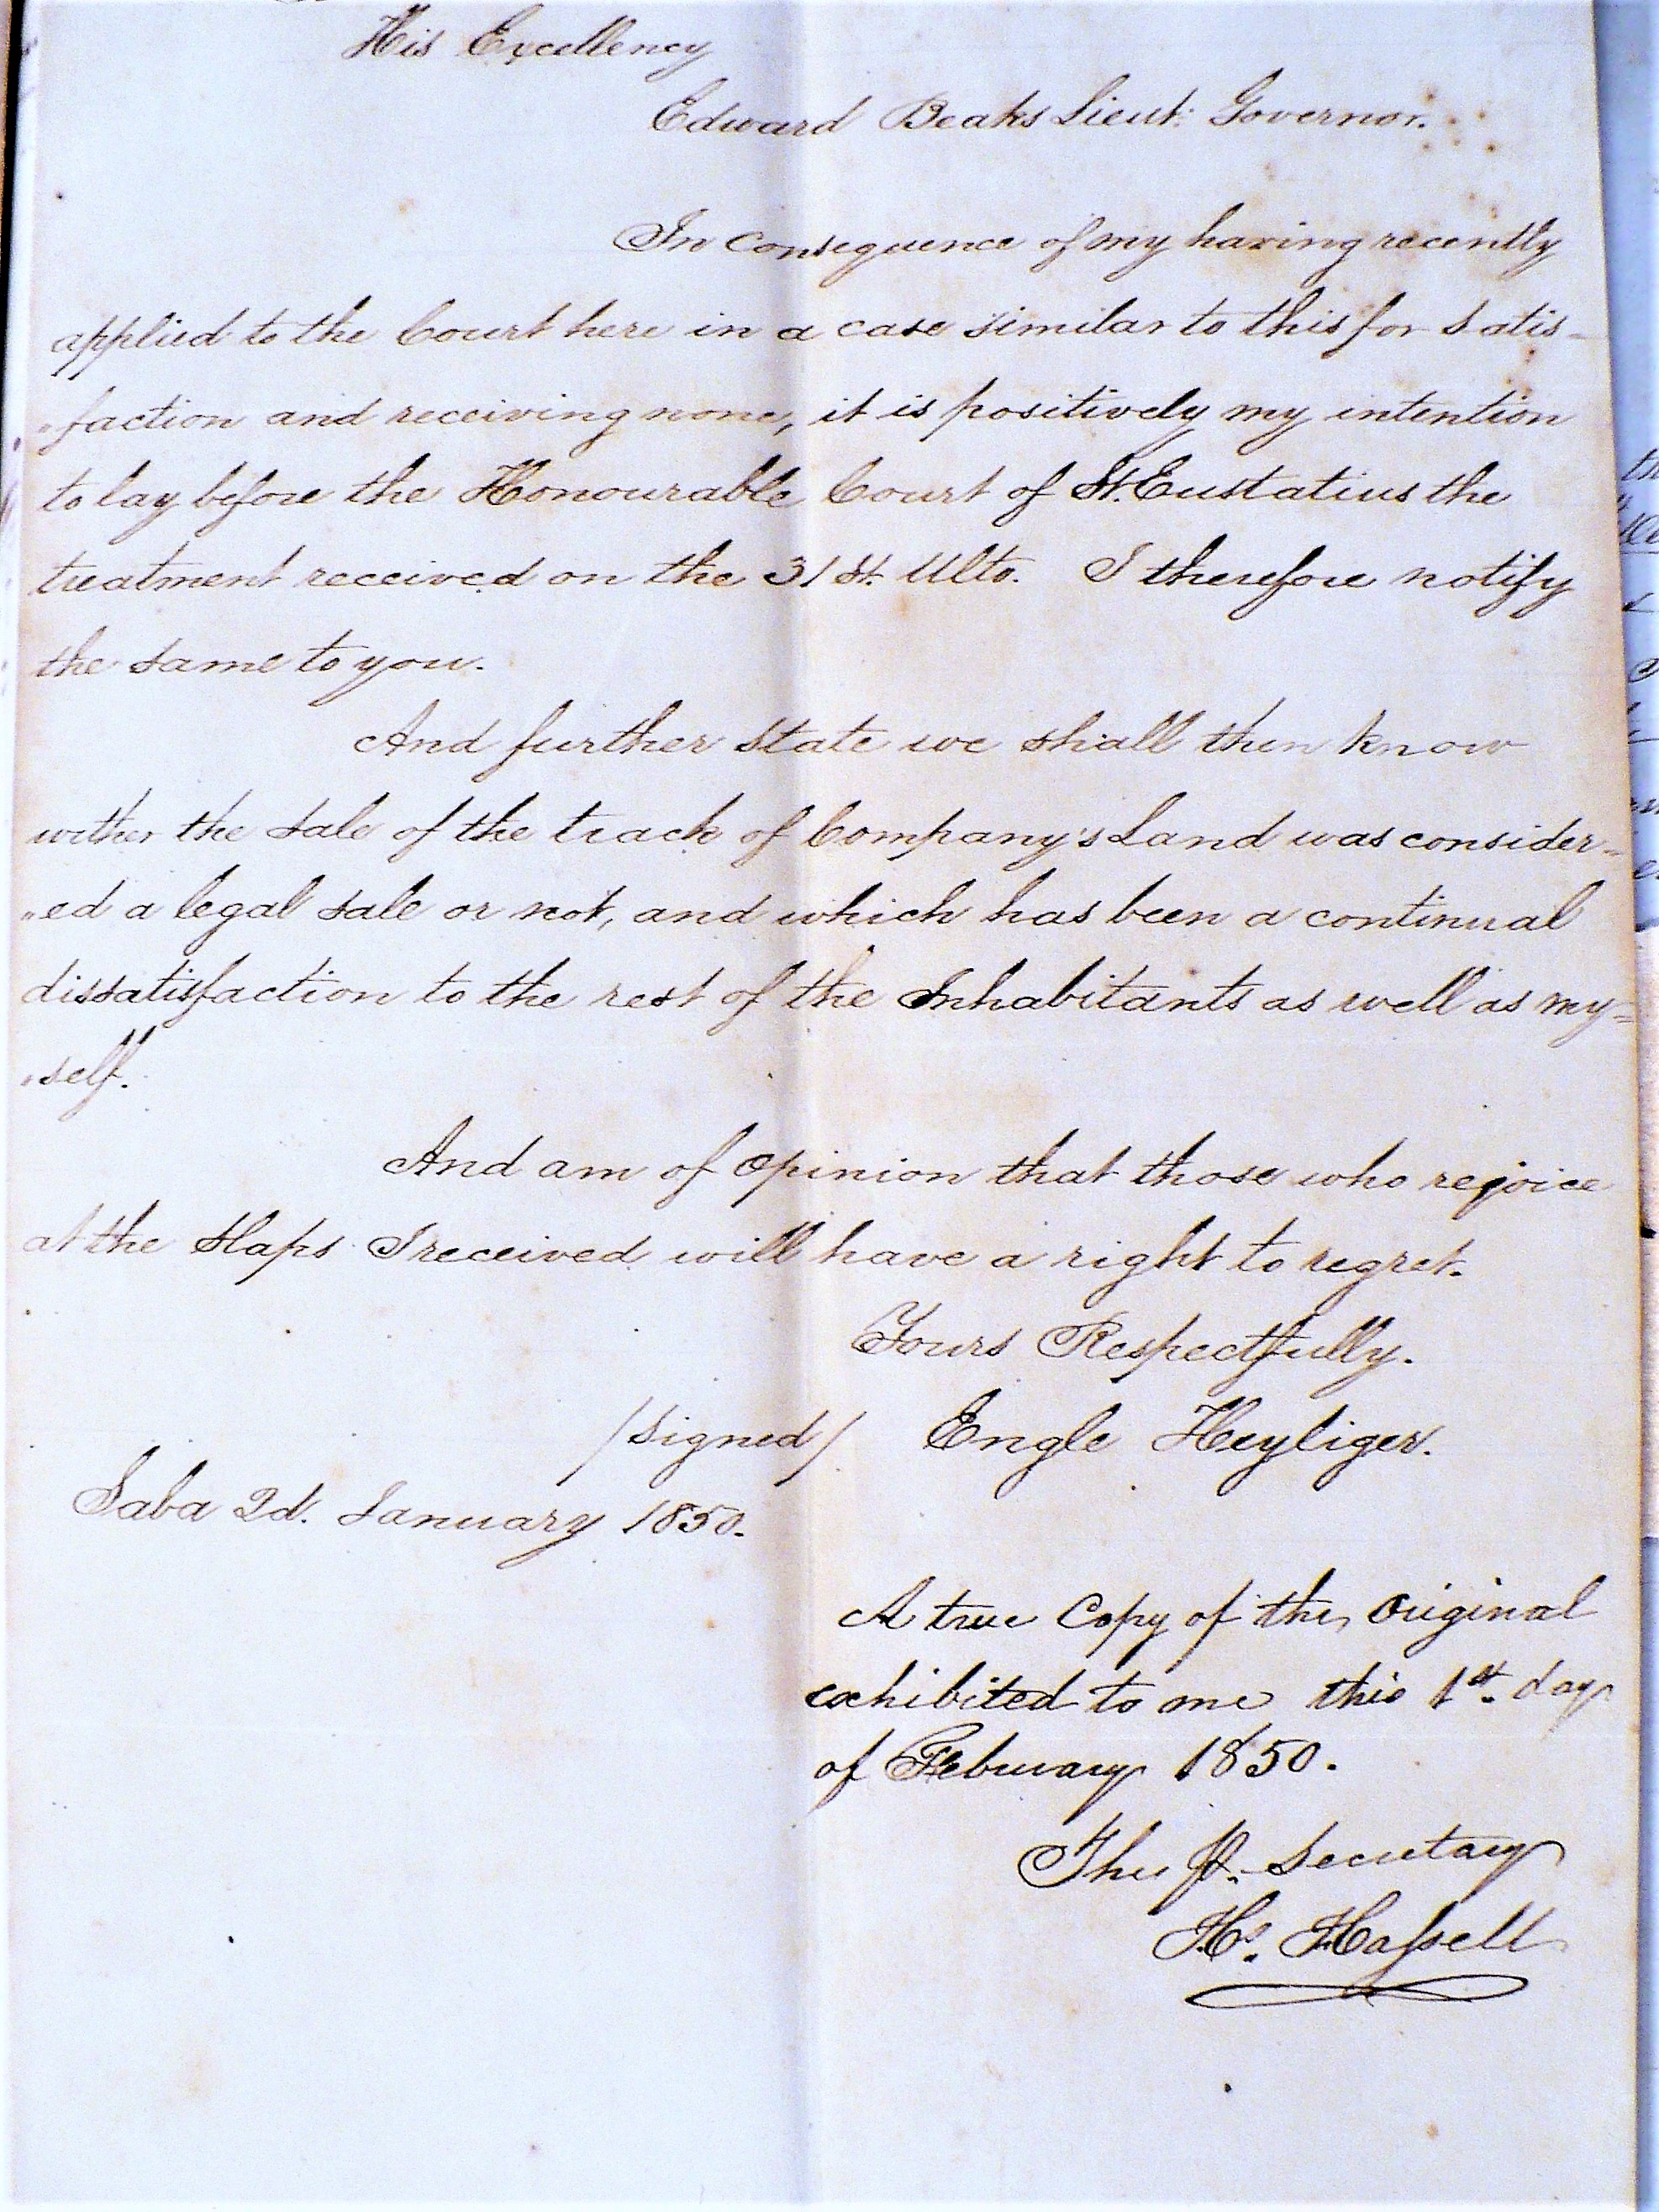 His Excellency
Edward Beaks Lieut: Governor.
In Consequence of my having recently
applied to the Court here in a case similar to this for satis-
"faction and receiving none, it is positively my intention
to lay before the Honourable Court of St. Eustatius the
treatment received on the 31 st. Ulto. I therefore notify
the same to you.
And further state we shall then know
wither the sale of the track of Company's Land was consider=
"ed a legal sale or not, and which has been a continual
dissatisfaction to the rest of the Inhabitants as well as my=
"self.
And am of opinion that those who rejoice
at the slaps I received will have a right to regret.
Yours Respectfully.
/signed/ Engle Heyliger.
Saba 2d. January 1850.
A true Copy of the Original
exhibited to me this 1st. day
of February 1850.
The Secretary
Hs. Hassell